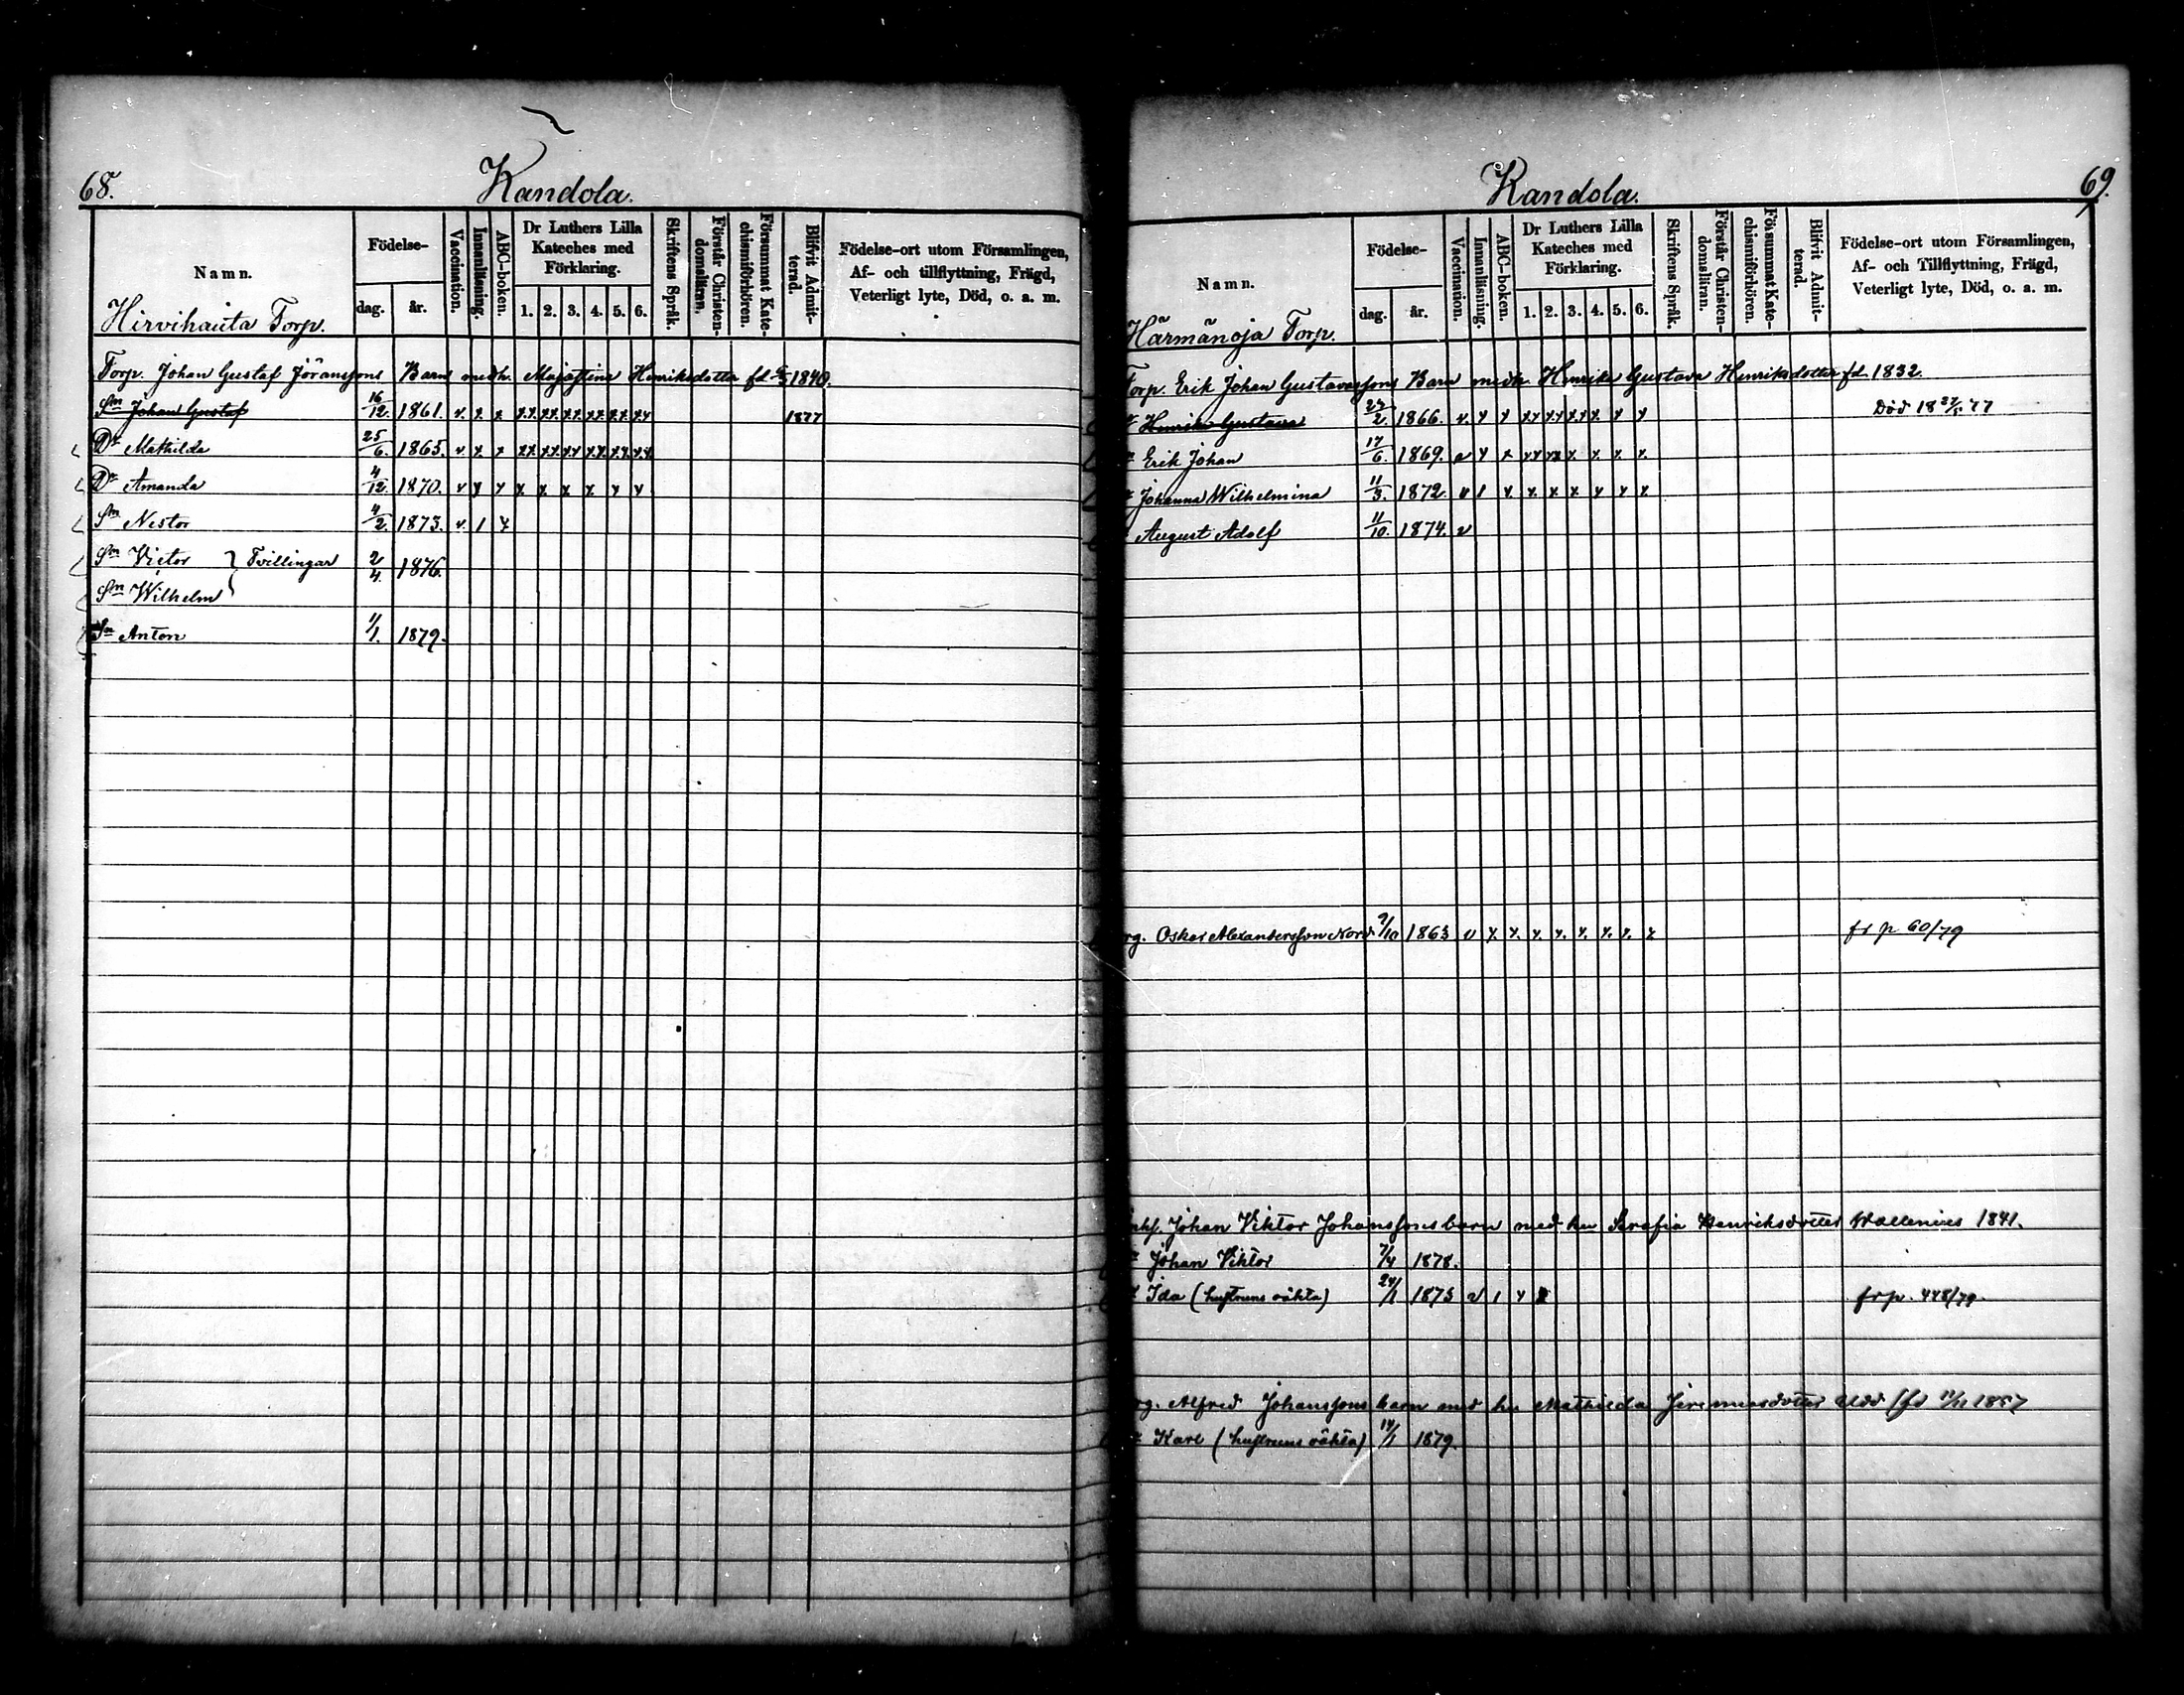 68.
Kandola.
Namn.
Födelse-
dag. år.
Vaccination.
Innanläsning.
ABC-boken.
Dr Luthers Lilla
Kateches med
Förklaring.
1. 2. 3. 4. 5. 6.
Skriftens Språk.
Förstår Christen-
domsläran.
Försummat Kate-
chismiförhören.
Blifvit Admit-
terad.
Födelse-ort utom Församlingen,
Af- och tillflyttning, Frägd,
Veterligt lyte, Död, o. a. m.
Hirvihauta Torp.
Torp. Johan Gustaf Jöranssons Barn med h. Majastina Henriksdotter fd 1840.
Sn Johan Gustaf 16/12. 1861. v. x x xx xx xx xx xx xx 1877
Dr Mathilda 25/6. 1865. v x x xx xx xx xx xx xx
Dr Amanda 4/12. 1870. v x x x x x x x x
Sn Nestor 4/2. 1873. v. 1 x
Sn Victor } Tvillingar 2/4. 1876.
Sn Wilhelm
Sn Anton 1/1. 1879.
69.
Kandola.
Namn.
Födelse-
dag. år.
Vaccination.
Innanläsning.
ABC-boken.
Dr Luthers Lilla
Kateches med
Förklaring.
1. 2. 3. 4. 5. 6.
Skriftens Språk.
Förstår Christen-
domsläran.
Försummat Kate-
chismiförhören.
Blifvit Admit-
terad.
Födelse-ort utom Församlingen,
Af- och Tillflyttning, Frägd,
Veterligt lyte, Död, o. a. m.
Härmänoja Torp.
Torp. Erik Johan Gustavssons Barn med h. Henrika Gustava Henriksdotter fd. 1832.
Henrika Gustava 27/2. 1866. v. x x xx xx xx x x x Död 18 77
Erik Johan 17/6. 1869. v x x xx xx x x x x
Johanna Wilhelmina 11/3. 1872. v 1 x x x x x x x
August Adolf 11/10. 1874. v
Oskar Alexandersson Nord 9/10 1863 v x x x x x x x x fr p 60/79
Johan Viktor Johanssons barn med hu Serafia Henriksdotter Wallenius 1841.
Johan Viktor 7/4 1878.
Ida (hustruns oäkta) 24/1 1873 v 1 x fr p. 448/79.
Alfred Johanssons barn med hu Mathilda Jeremiasdotter 1857
Karl (hustruns oäkta) 14/1 1879.